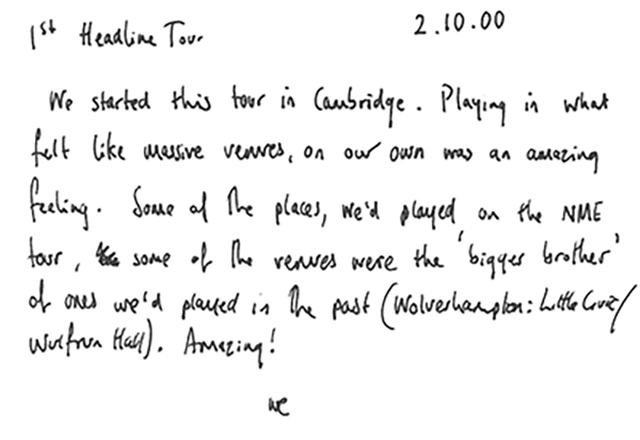 1st Headline Tour 2.10.00
We started this tour in Cambridge. Playing in what
felt like massive venues, on our own was an amazing
feeling. Some of the places, we'd played on the NME
tour, some of the venues were the 'bigger brother'
of ones we'd played in the past (Wolverhampton: Little Civic/
Wulfrun Hall). Amazing!
we